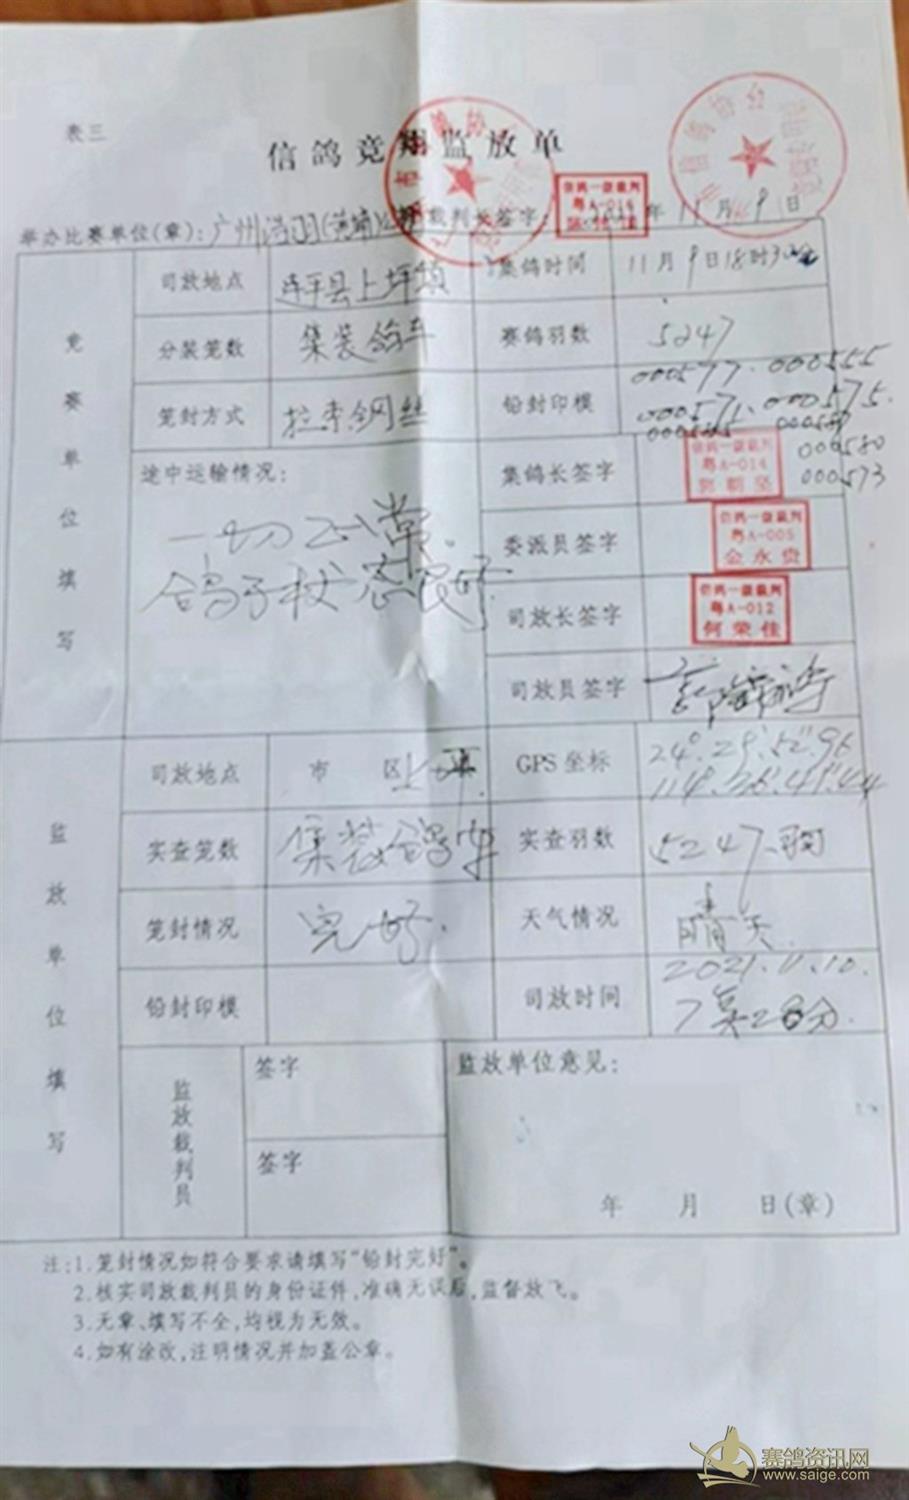 表三
信鸽竞翔监放单
举办比赛单位(章): 广州 裁判长签字: 年11月9日
竞赛单位填写
司放地点 连平县上坪镇 集鸽时间 11月9日18时30分
分装笼数 集装鸽车 赛鸽羽数 5247
笼封方式 拉索钢丝 铅封印模 000577.000555
000571.000575.
000580
000573
途中运输情况: 集鸽长签字 信鸽一级裁判
粤A-014
一切正常.
鸽子状态良好.
委派员签字 信鸽一级裁判
粤A-005
金永贵
司放长签字 信鸽一级裁判
粤A-012
何荣佳
司放员签字
监放单位填写
司放地点 市 区上坪 GPS坐标 24°.29'.52".96
实查笼数 集装鸽车 实查羽数 5247.羽
笼封情况 完好. 天气情况 晴天.
铅封印模 司放时间 2021.11.10.
监放裁判员
签字
签字
监放单位意见:
年 月 日(章)
注:1.笼封情况如符合要求请填写“铅封完好”。
2.核实司放裁判员的身份证件,准确无误后,监督放飞。
3.无章、填写不全,均视为无效。
4.如有涂改,注明情况并加盖公章。
赛鸽资讯网
www.saige.com